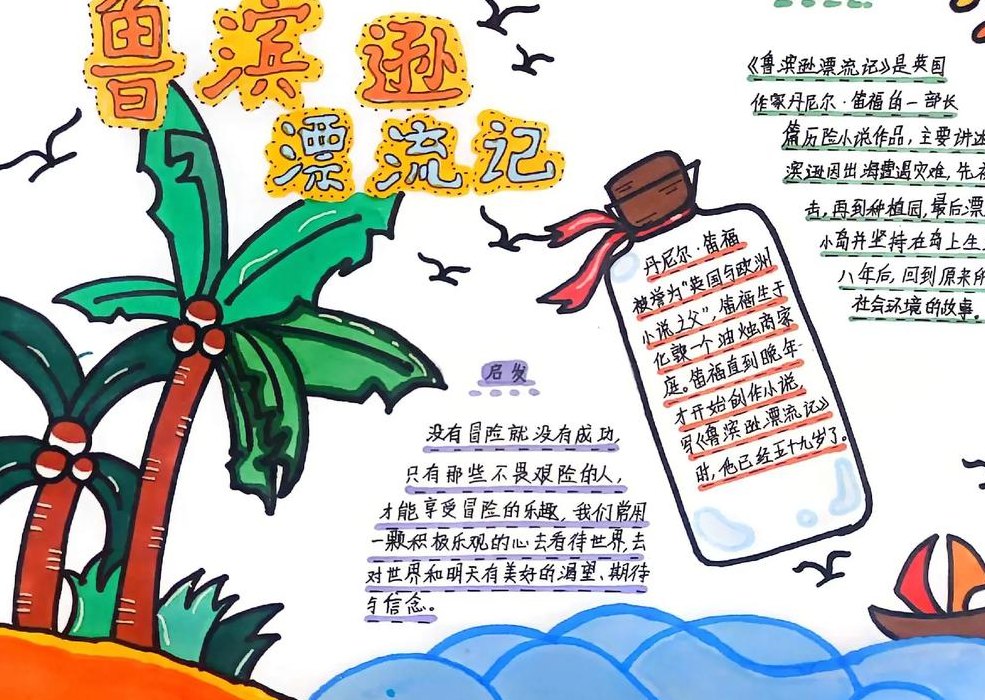 鲁滨逊
漂流记
《鲁滨逊漂流记》是英国
作家丹尼尔·笛福的一部长
篇历险小说作品,主要讲述
滨逊因出海遭遇灾难,先被
击,再到种植园,最后漂
小岛并坚持在岛上生
八年后,回到原来所
社会环境的故事。
丹尼尔·笛福
被誉为“英国与欧洲
小说之父”,笛福生于
伦敦一个油烛商家
庭。笛福直到晚年
才开始创作小说,
写《鲁滨逊漂流记》
时,他已经五十九岁了。
启发
没有冒险就没有成功,
只有那些不畏艰险的人,
才能享受冒险的乐趣,我们常用
一颗积极乐观的心去看待世界,去
对世界和明天有美好的渴望、期待
与信念。